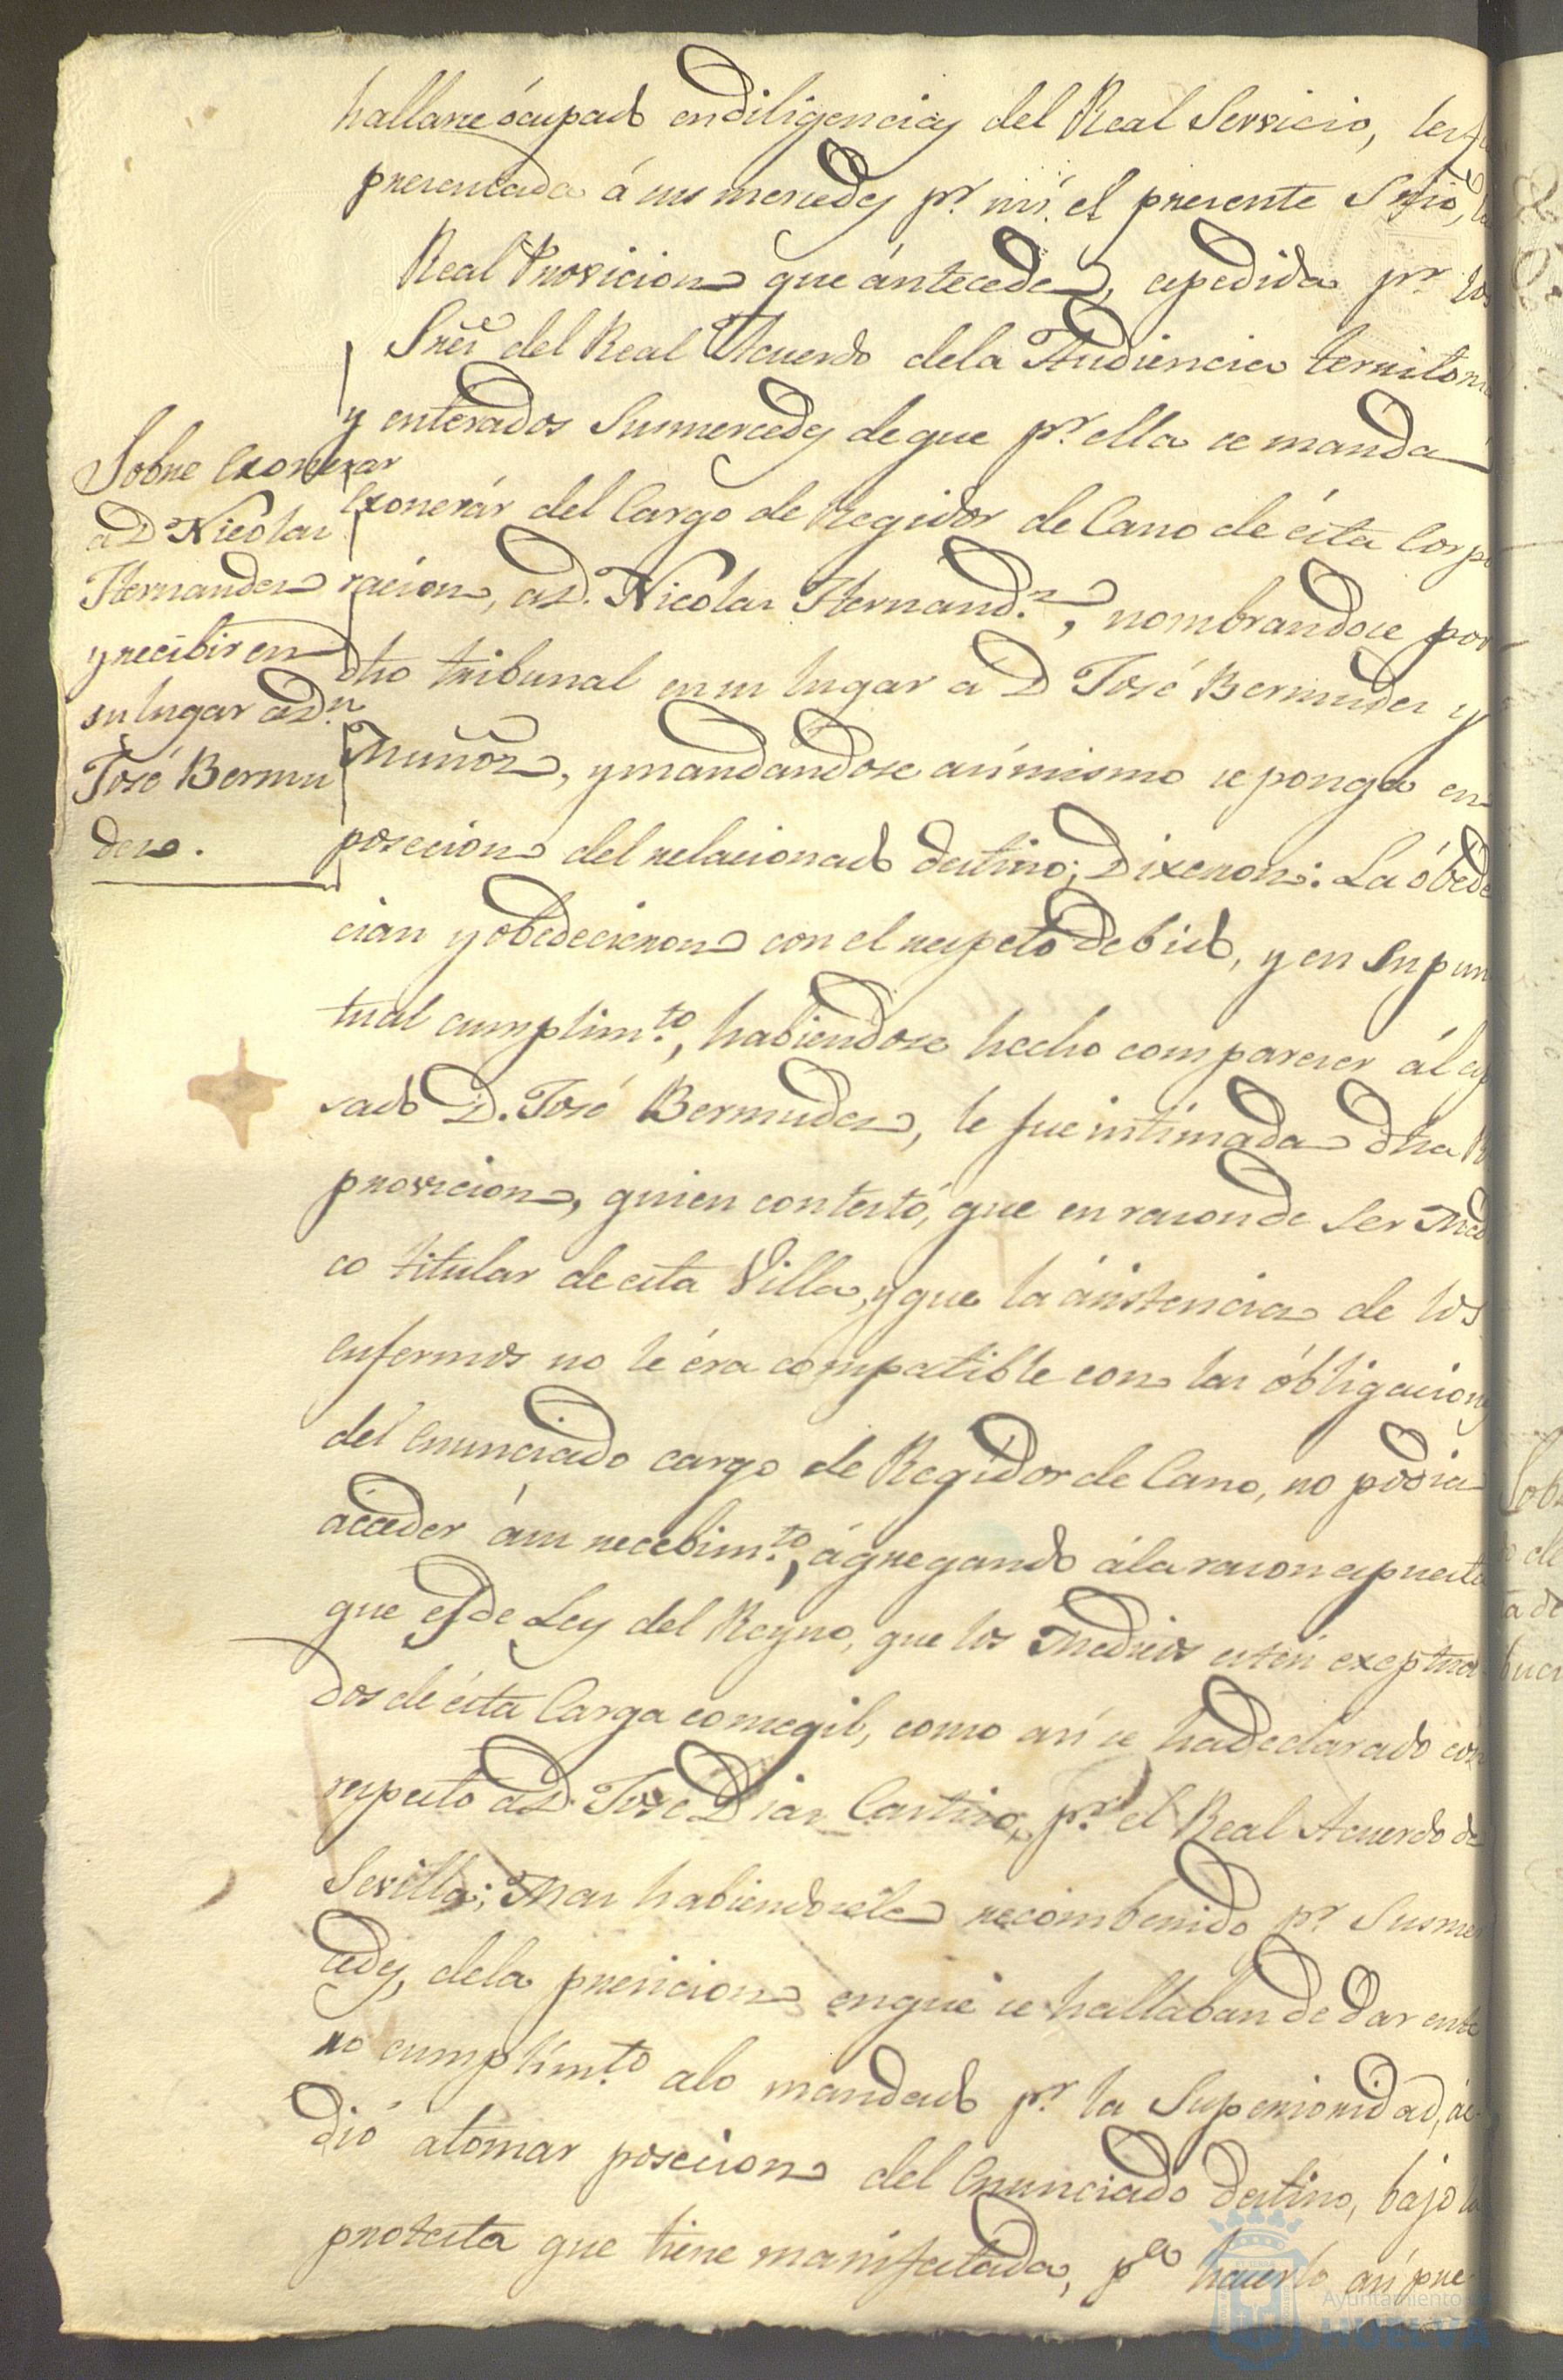 hallarse ócupado endiligencias del Real Servicio, les fu
presentada á sus mercedes pr. mí el presente Srio, la
Real Provicion que ántecede, espedida pr. los
Sres del Real Acuerdo dela Audiencia territori
y enterados Susmercedes deque pr. ella se manda
Exonerár del Cargo de Regidor de Cano de ésta Corpo
racion, a D. Nicolas Hernand.z, nombrandose por
dho tribunal en su lugar a D José Bermudez y
Muñoz, y mandandose asimismo se ponga en
posecion del relacionado destino; Dixeron: La óbede
cian y obedecieron con el respeto debido, y en Su pun
tual cumplim.to, habiendose hecho comparecer ál es
sado D. José Bermudez, le fue intimada dha R
provicion, quien contestó, que en rason de Ser Medi
co titular de esta Villa, y que la ásistencia de los
enfermos no le éra compatible con las óbligaciones
del Enunciado cargo de Regidor de Cano, no podia
ácceder á su recebim.to, ágregando ála rason espuesta
que es de Ley del Reyno, que los Medicos estén exceptua
dos de ésta Carga consegil, como así se ha declarado con
respecto a D. José Diaz Castizo, pr. el Real Acuerdo de
Sevilla; Mas habiendosele recombenido pr. Susmer
cedes, dela presicion en que se hallaban de dar ente
ro cumplim.to alo mandado pr. la Superioridad, ác
dió atomar posecion del Enunciado destino, bajo la
protesta que tiene manifestada, pa hacerlo así pre
Sobre Exonerar
a D Nicolas
Hernandez
y recibir en
su lugar a Dn
José Bermu
dez.
Ayuntamiento de
HUELVA